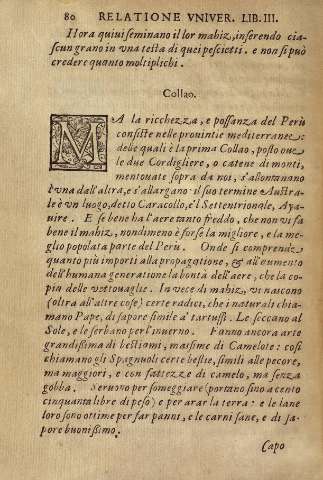 80 RELATIONE VNIVER. LIB. III.
Hora qui ui seminano il lor mahiz, inserendo cia-
scun grano in vna testa di quei pescietti. e non si può
credere quanto moltiplichi.
Collao.
MA la ricchezza, e possanza del Perù
consiste nelle prouintie mediterranee:
delle quali è la prima Collao, posto oue
le due Cordigliere, o catene di monti,
mentouate sopra da noi, s'allontanano
l'vna dall'altra, e s'allargano. il suo termine Austra-
le è vn luogo, detto Caracollo, è l Settentrionale, Aya-
uire. E se bene ha l'aere tanto freddo, che non vi fa
bene il mahiz, nondimeno è forse la migliore, e la me-
glio popolata parte del Perù. Onde si comprende
quanto più importi alla propagatione, & all'aumento
dell'humana generatione la bontà dell'aere, che la co-
pia delle vettouaglie. In vece di mahiz, vi nascono
(oltra all'altre cose) certe radici, che i naturali chia-
mano Pape, di sapore simile a' tartuffi. Le seccano al
Sole, e le serbano per l'inuerno. Fanno ancora arte
grandissima di bestiami, massime di Camelote: così
chiamano gli Spagnuoli certe bestie, simili alle pecore,
ma maggiori, e con fattezze di camelo, ma senza
gobba. Seruono per someggiare (portano sino a cento
cinquanta libre di peso) e per arar la terra: e le lane
loro sono ottime per far panni, e le carni sane, e di sa-
pore buonissimo.
Capo